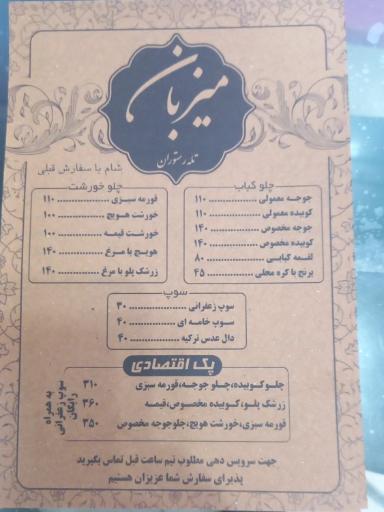 میزبان
تله رستوران
شام با سفارش قبلی
چلو کباب
جوجه معمولی ........ ۱۱۰
کوبیده معمولی ........ ۱۱۰
جوجه مخصوص ........ ۱۴۰
کوبیده مخصوص ........ ۱۴۰
لقمه کبابی ........ ۸۰
برنج با کره محلی ........ ۴۵
چلو خورشت
قورمه سبزی ........ ۱۱۰
خورشت هویج ........ ۱۰۰
خورشت قیمه ........ ۱۰۰
هویج با مرغ ........ ۱۴۰
زرشک پلو با مرغ ........ ۱۴۰
سوپ
سوپ زعفرانی ........ ۳۰
سوپ خامه ای ........ ۴۰
دال عدس ترکیه ........ ۴۰
پک اقتصادی
چلو کوبیده،چلو جوجه،قورمه سبزی ۳۱۰
زرشک پلو،کوبیده مخصوص،قیمه ۳۶۰
قورمه سبزی،خورشت هویج،چلوجوجه مخصوص ۳۵۰
به همراه
سوپ زعفرانی
رایگان
جهت سرویس دهی مطلوب نیم ساعت قبل تماس بگیرید
پذیرای سفارش شما عزیزان هستیم